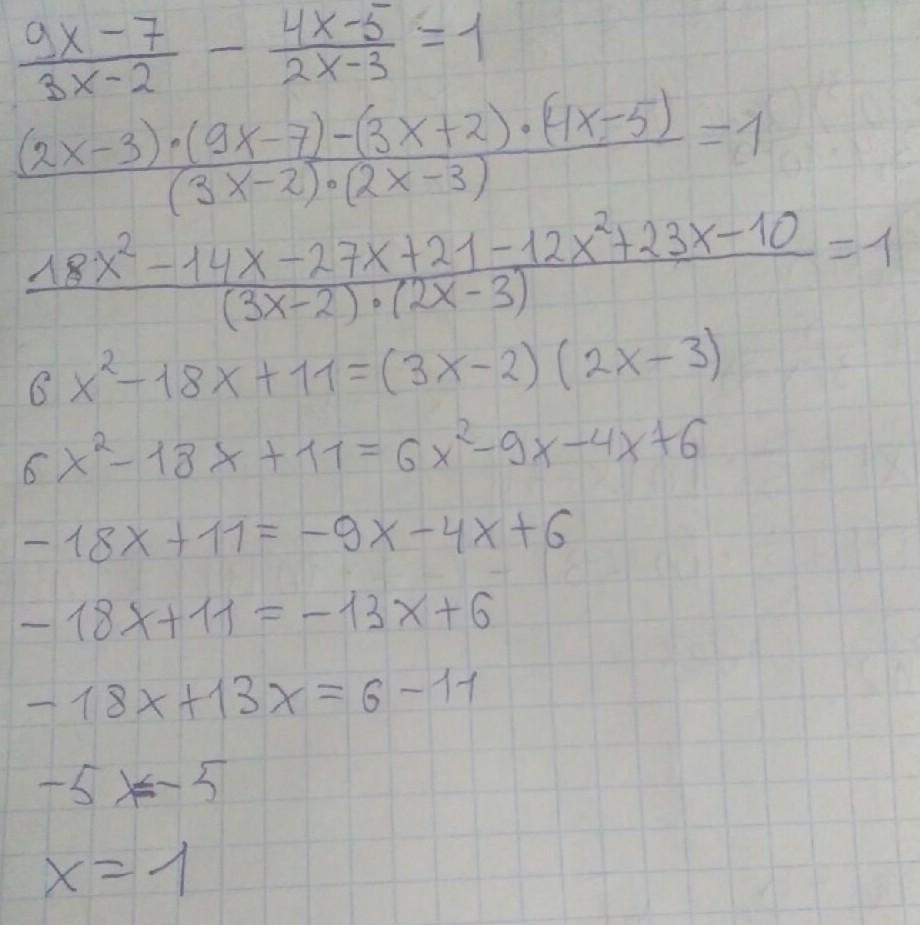 (9x-7)/(3x-2) - (4x-5)/(2x-3) = 1
((2x-3)·(9x-7)-(3x+2)·(4x-5))/((3x-2)·(2x-3)) = 1
(18x²-14x-27x+21-12x²+23x-10)/((3x-2)·(2x-3)) = 1
6x²-18x+11=(3x-2)(2x-3)
6x²-18x+11=6x²-9x-4x+6
-18x+11=-9x-4x+6
-18x+11=-13x+6
-18x+13x=6-11
-5x=-5
x=1